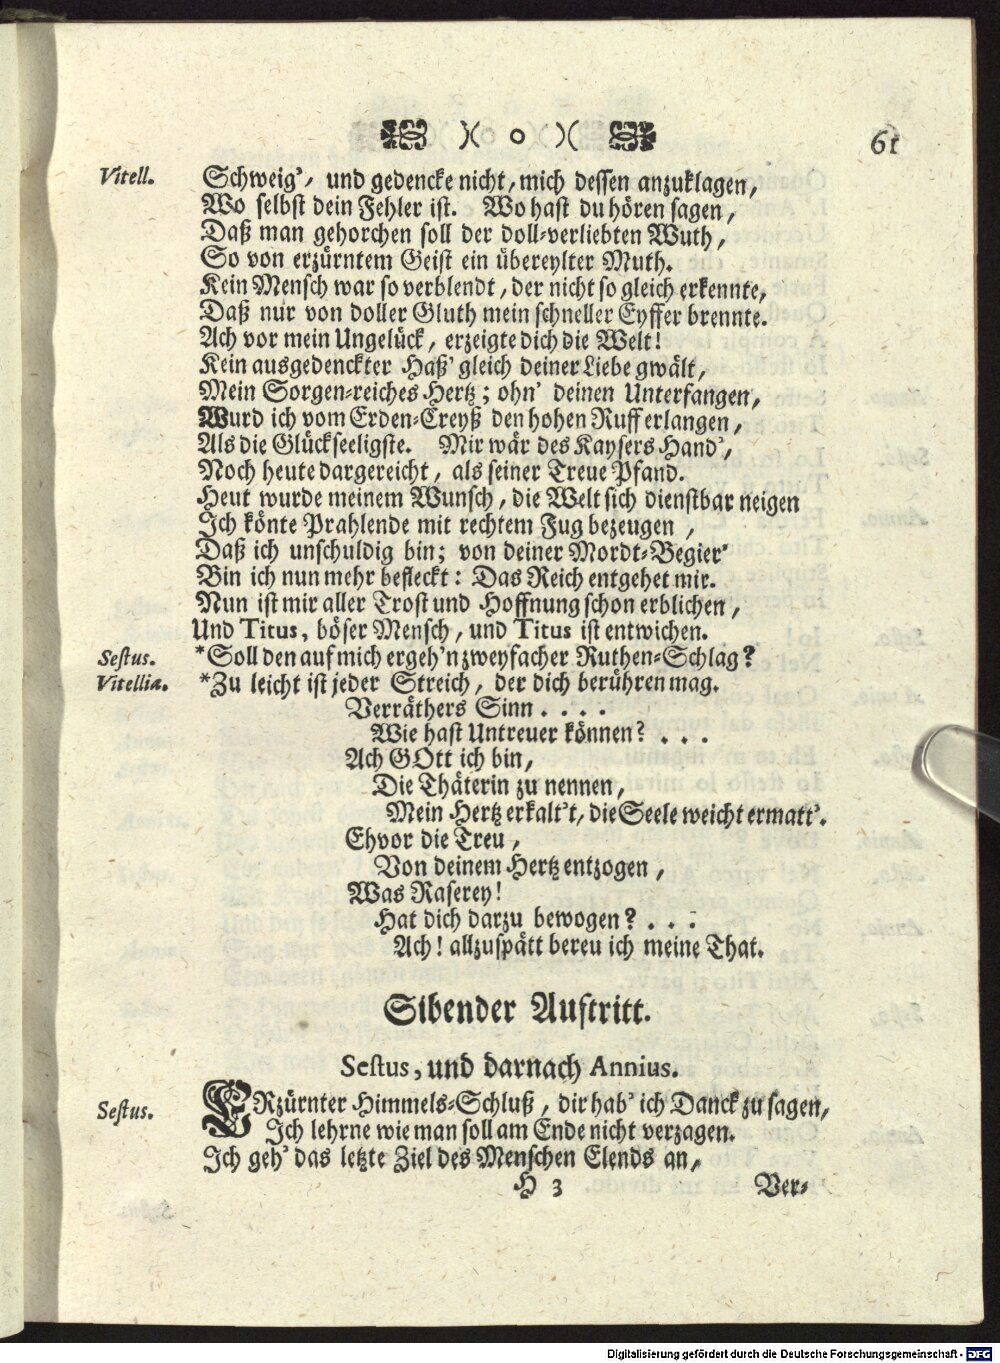 )( o )( 61
Vitell. Schweig', und gedencke nicht, mich dessen anzuklagen,
Wo selbst dein Fehler ist. Wo hast du hören sagen,
Daß man gehorchen soll der doll-verliebten Wuth,
So von erzürntem Geist ein übereylter Muth.
Kein Mensch war so verblendt, der nicht so gleich erkennte,
Daß nur von doller Gluth mein schneller Eyffer brennte.
Ach vor mein Ungelück, erzeigte dich die Welt!
Kein ausgedenckter Haß' gleich deiner Liebe gwält,
Mein Sorgen-reiches Hertz; ohn' deinen Unterfangen,
Wurd ich vom Erden-Creyß den hohen Ruff erlangen,
Als die Glückseeligste. Mir wär des Kaysers Hand',
Noch heute dargereicht, als seiner Treue Pfand.
Heut wurde meinem Wunsch, die Welt sich dienstbar neigen
Ich könte Prahlende mit rechtem Fug bezeugen,
Daß ich unschuldig bin; von deiner Mordt-Begier'
Bin ich nun mehr befleckt: Das Reich entgehet mir.
Nun ist mir aller Trost und Hoffnung schon erblichen,
Und Titus, böser Mensch, und Titus ist entwichen.
Sestus. *Soll den auf mich ergeh'n zweyfacher Ruthen-Schlag?
Vitellia. *Zu leicht ist jeder Streich, der dich berühren mag.
Verräthers Sinn . . . .
Wie hast Untreuer können? . . .
Ach GOtt ich bin,
Die Thäterin zu nennen,
Mein Hertz erkalt't, die Seele weicht ermatt'.
Ehvor die Treu,
Von deinem Hertz entzogen,
Was Raserey!
Hat dich darzu bewogen? . . .
Ach! allzuspätt bereu ich meine That.
Sibender Auftritt.
Sestus, und darnach Annius.
Sestus. ERzürnter Himmels-Schluß, dir hab' ich Danck zu sagen,
Ich lehrne wie man soll am Ende nicht verzagen.
Ich geh' das letzte Ziel des Menschen Elends an,
H 3 Ver-
Digitalisierung gefördert durch die Deutsche Forschungsgemeinschaft - DFG